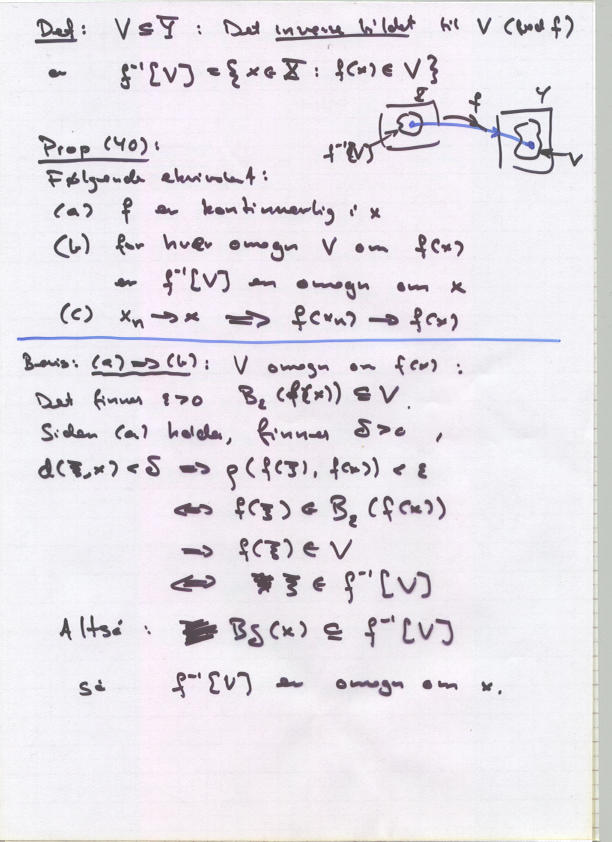 Def: V ⊆ Y : Det inverse bildet til V (ved f)
er f⁻¹[V] = {x ∈ X : f(x) ∈ V}
X f Y
f⁻¹[V] V
Prop (40):
Følgende ekvivalent:
(a) f er kontinuerlig i x
(b) for hver omegn V om f(x)
er f⁻¹[V] en omegn om x
(c) xₙ → x ⟹ f(xₙ) → f(x)
Bevis: (a) ⟹ (b): V omegn om f(x) :
Det finnes ε>0 B_ε(f(x)) ⊆ V.
Siden (a) holder, finnes δ>0,
d(ξ,x) < δ ⟹ ρ(f(ξ), f(x)) < ε
⟺ f(ξ) ∈ B_ε(f(x))
⟹ f(ξ) ∈ V
⟺ ξ ∈ f⁻¹[V]
Altså : B_δ(x) ⊆ f⁻¹[V]
så f⁻¹[V] er omegn om x.